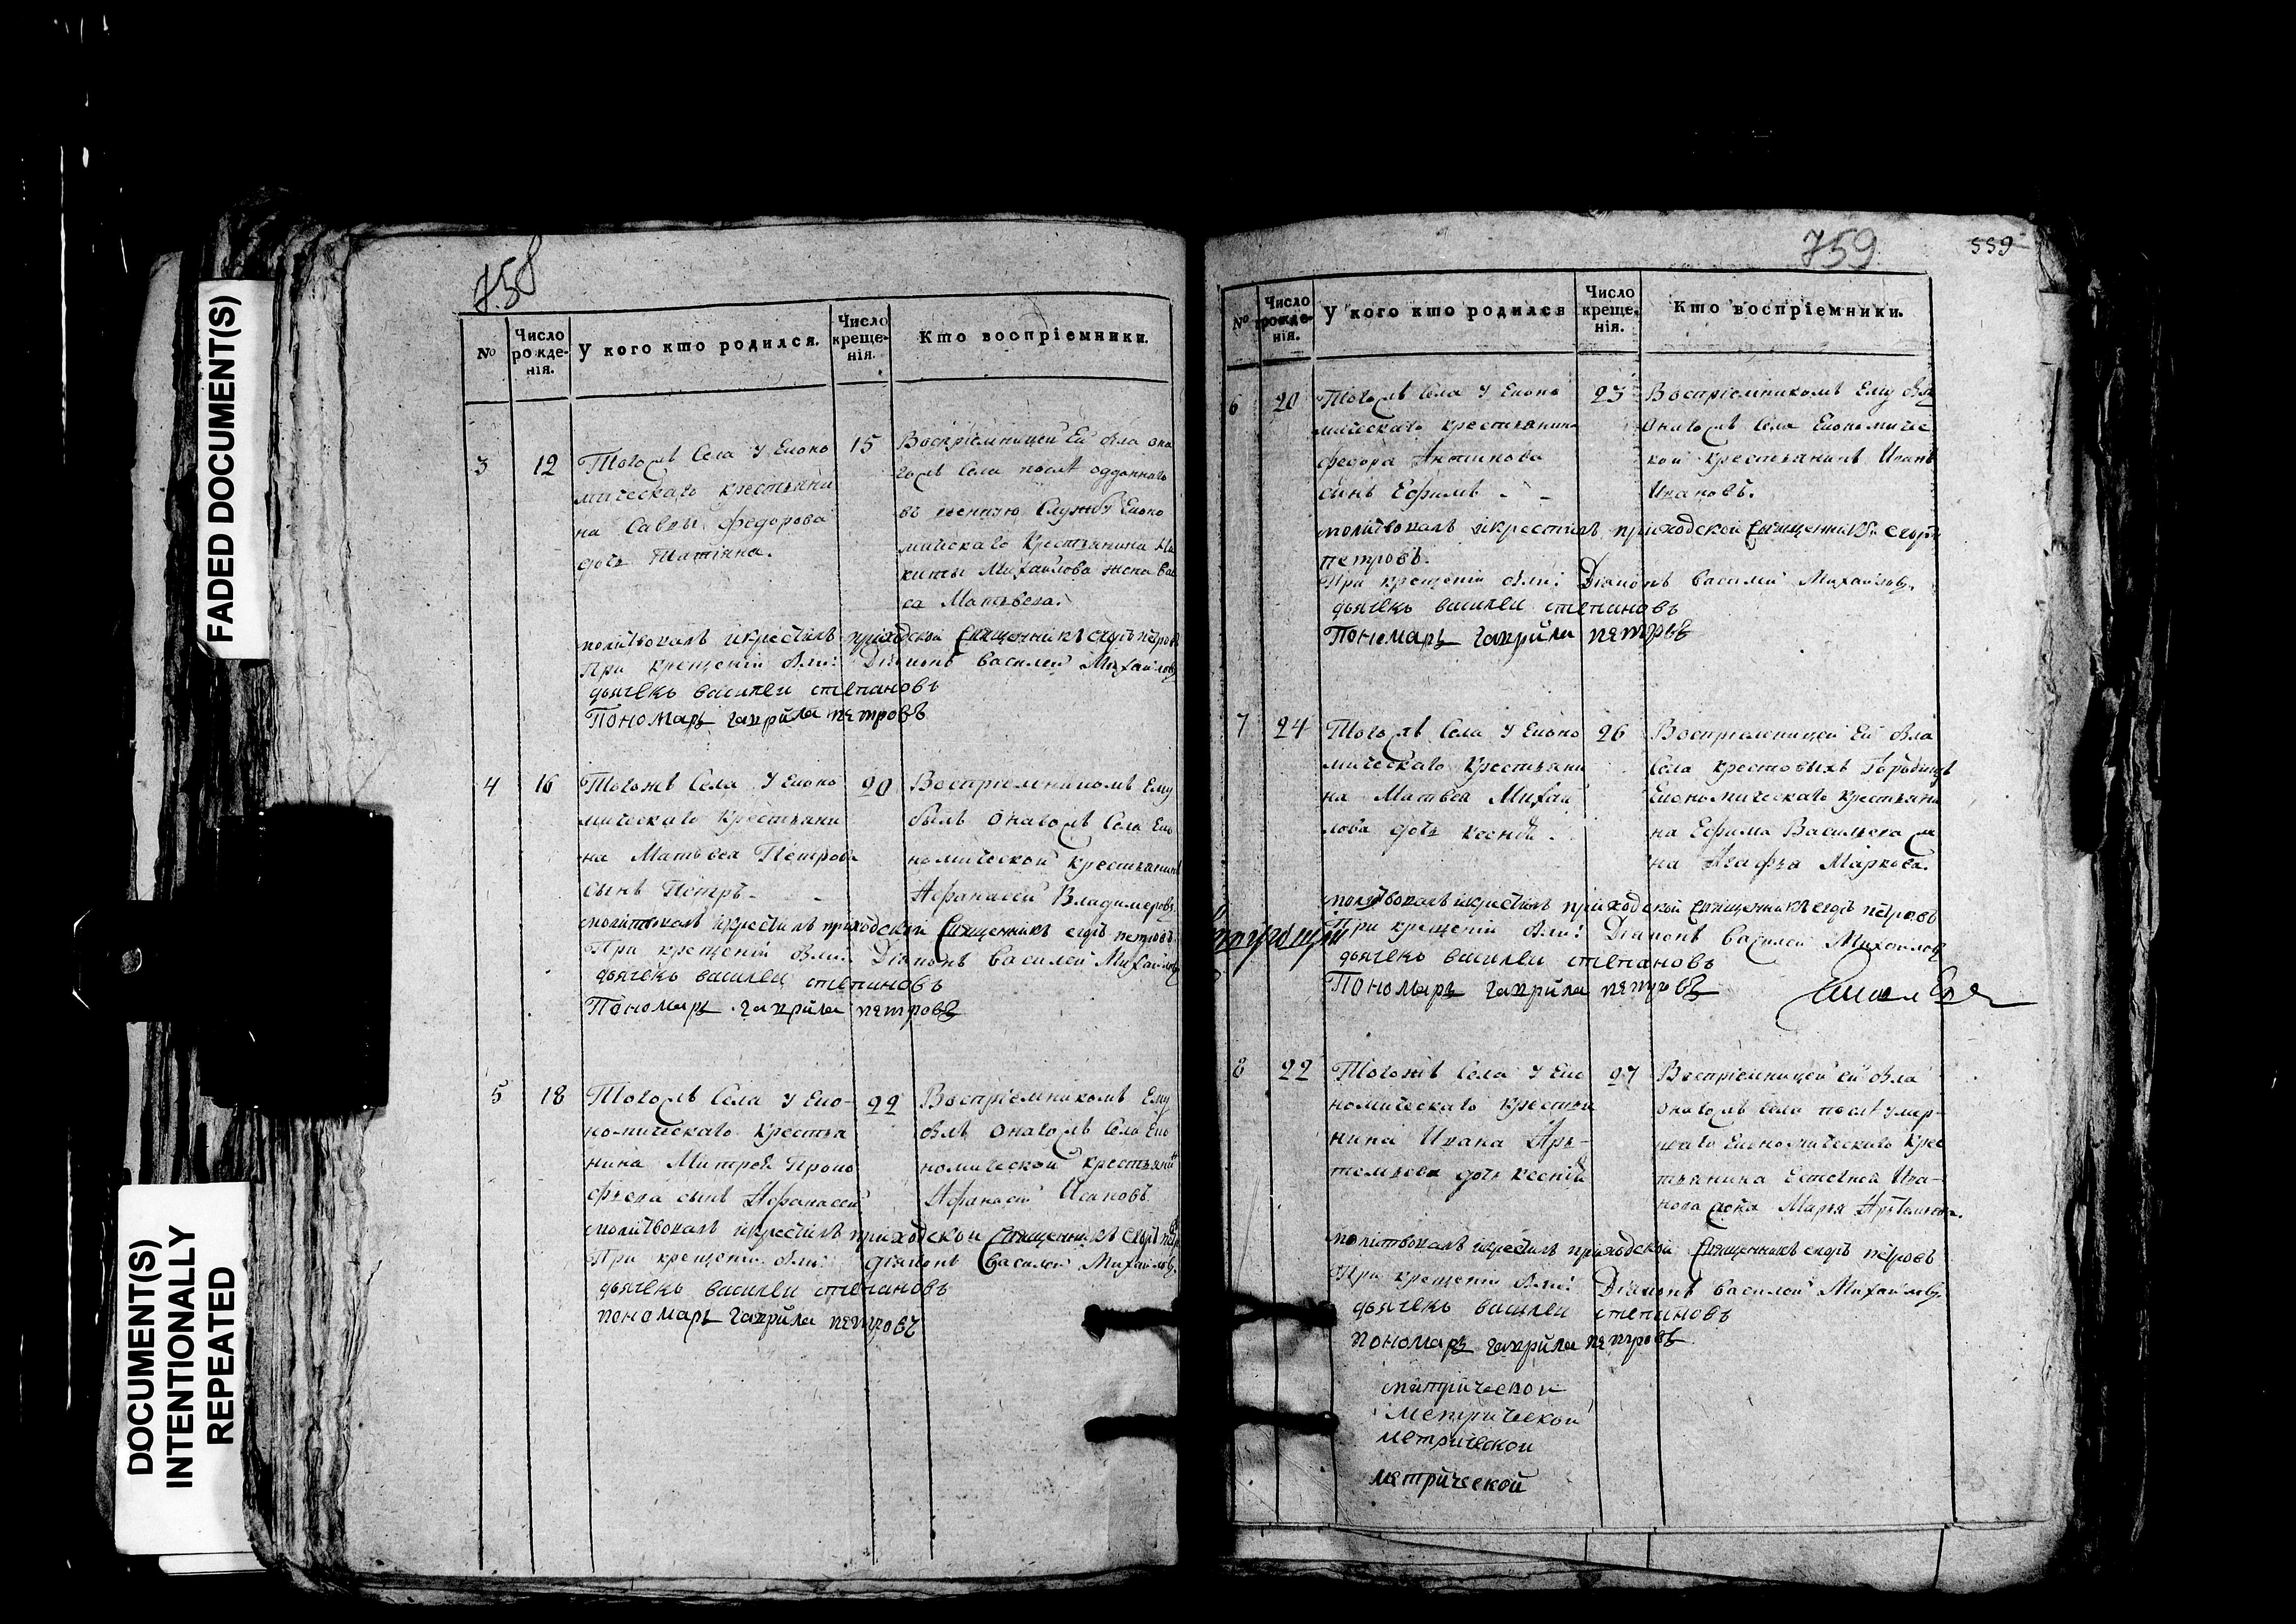 FADED DOCUMENT(S)
DOCUMENT(S)
INTENTIONALLY
REPEATED
758
№
Число рожде-нія.
У кого кто родился.
Число креще-нія.
Кто воспріемники.
3
12
Тогожъ Села У Еконо
мическаго крестьяни
на Савы федорова
дочь Татіана.
15
Воспріемницей Ей была она
гожъ Села послѣ отданнаго
въ военную Службу Еконо
мическаго Крестьянина Ни
киты Михайлова жена Вас
са Матвеева.
молитвовалъ икрестилъ приходской Священникъ егоръ петровъ
При крещеніи были: Діаконъ Василей Михайловъ
дьячекъ василеи степановъ
Пономарь гаврила петровъ
4
16
Тогожъ Села У Еконо
мическаго Крестьяни
на Матвея Петрова
сынъ Петръ.
20
Воспріемникомъ Ему
былъ Онагожъ Села Еко
номической крестьянинъ
Афанасей Владимеровъ.
молитвовалъ икрестилъ приходской Священникъ егоръ петровъ
При крещеній были: Діаконъ Василей Михайловъ
дьячекъ василеи степановъ
Пономарь гаврила петровъ
5
18
Тогожъ Села У Еко-
номическаго Крестья
нина Митрея Проко
фьева сынъ Афанасей
22
Воспріемникомъ Ему
былъ Онагожъ Села Еко
номической крестьянинъ
Афанасей Исаковъ
молитвовалъ икрестилъ приходскои Священникъ егоръ петровъ
При крещеніи были: діаконъ Василей Михайловъ.
дьячекъ василеи степановъ
пономарь гаврила петровъ
759
559
№
Число рожде-нія.
У кого кто родился
Число креще-нія.
Кто воспріемники.
6
20
Тогожъ Села У Еконо
мическаго крестьянина
федора Антипова
сынъ Ефимъ
23
Воспріемникомъ Ему былъ
Онагожъ Села Економичес
кой крестьянинъ Иванъ
Ивановъ.
молитвовалъ икрестилъ приходской Священникъ егоръ
петровъ.
При крещеніи были: Діаконъ Василей Михайловъ.
дьячекъ василеи степановъ
Пономарь гаврила петровъ
7
24
Тогожъ Села У Еконо
мическаго Крестьяни
на Матвея Михай
лова дочь ксенія.
26
Воспріемницей Ей была
Села крестовыхъ Городищъ
Економическаго Крестьяни
на Ефима Васильева же
на Агафья Маркова.
молитвовалъ икрестилъ приходской Священникъ егоръ петровъ
При крещеніи были: Діаконъ Василей Михайловъ
дьячекъ василеи степановъ
Пономарь гаврила петровъ
8
22
Тогожъ Села У Еко
номическаго крестья
нина Ивана Ар-
темьева дочь ксенія
27
Воспріемницей ей была
онагожъ Села послѣ умер-
шаго Економическаго Крес
тьянина Евстѣфея Ива-
нова жена Марья Артемьева.
молитвовалъ икрестилъ приходской Священникъ егоръ петровъ
При крещеніи были: Діаконъ Василей Михайловъ.
дьячекъ василеи степановъ
пономарь гаврила петровъ
митрическои
Метрической
метрической
метрической